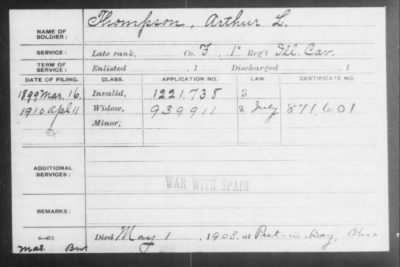 NAME OF SOLDIER: Thompson, Arthur L.
SERVICE: Late rank, Co. F, 1" Reg't Ill. Cav.
TERM OF SERVICE: Enlisted , 1 Discharged , 1
DATE OF FILING. CLASS. APPLICATION NO. LAW CERTIFICATE NO.
1899 Mar. 16. Invalid, 1221,738
1910 Apl 11 Widow, 939,911 July 871,601
Minor,
ADDITIONAL SERVICES:
WAR WITH SPAIN
REMARKS:
Died May 1, 1908, at Put-in-Bay, Ohio